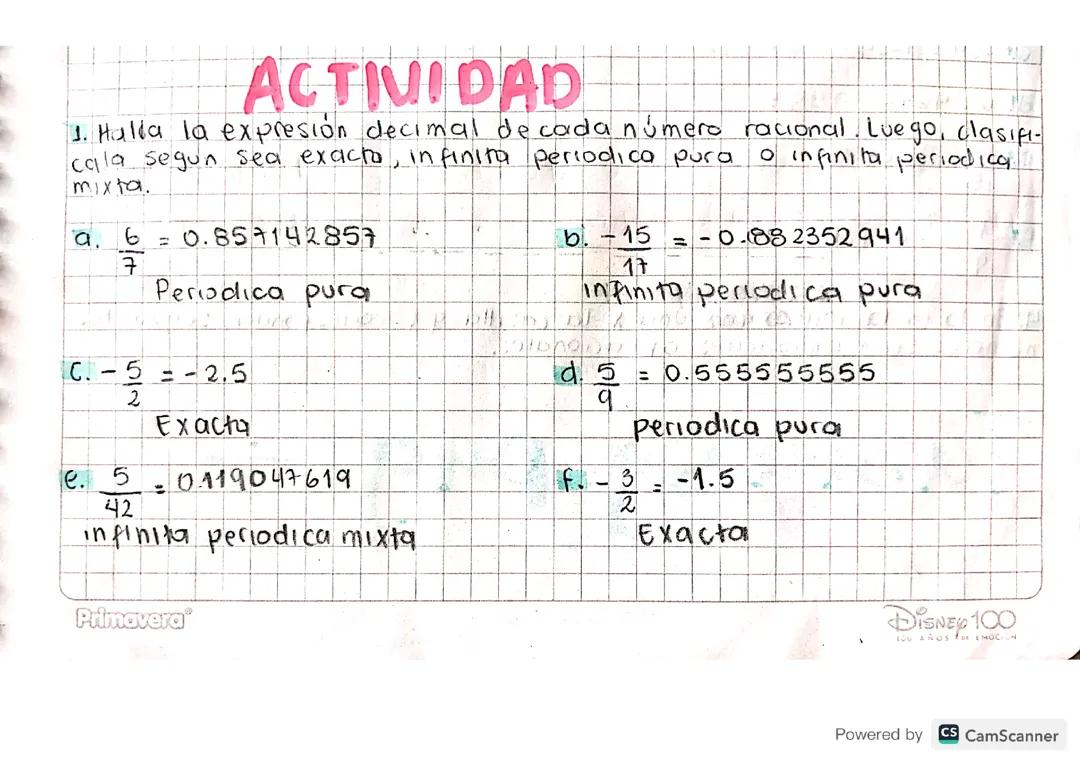 ACTIVIDAD
1. Halla la expresión decimal de cada número racional. Luego, clasifi-
cala segun sea exacta, infinita periodica pura o infinita periodica
mixta.
a. 6/7 = 0.857142857
b. -15/17 = -0.882352941
Periodica pura
infinita periodica pura
c. -5/2 = -2.5
d. 5/9 = 0.555555555
Exacta
periodica pura
e. 5/42 = 0.119047619
f. -3/2 = -1.5
infinita periodica mixta
Exacta
Primavera®
Disney 100
100 AÑOS DE EMOCIÓN
Powered by CS CamScanner